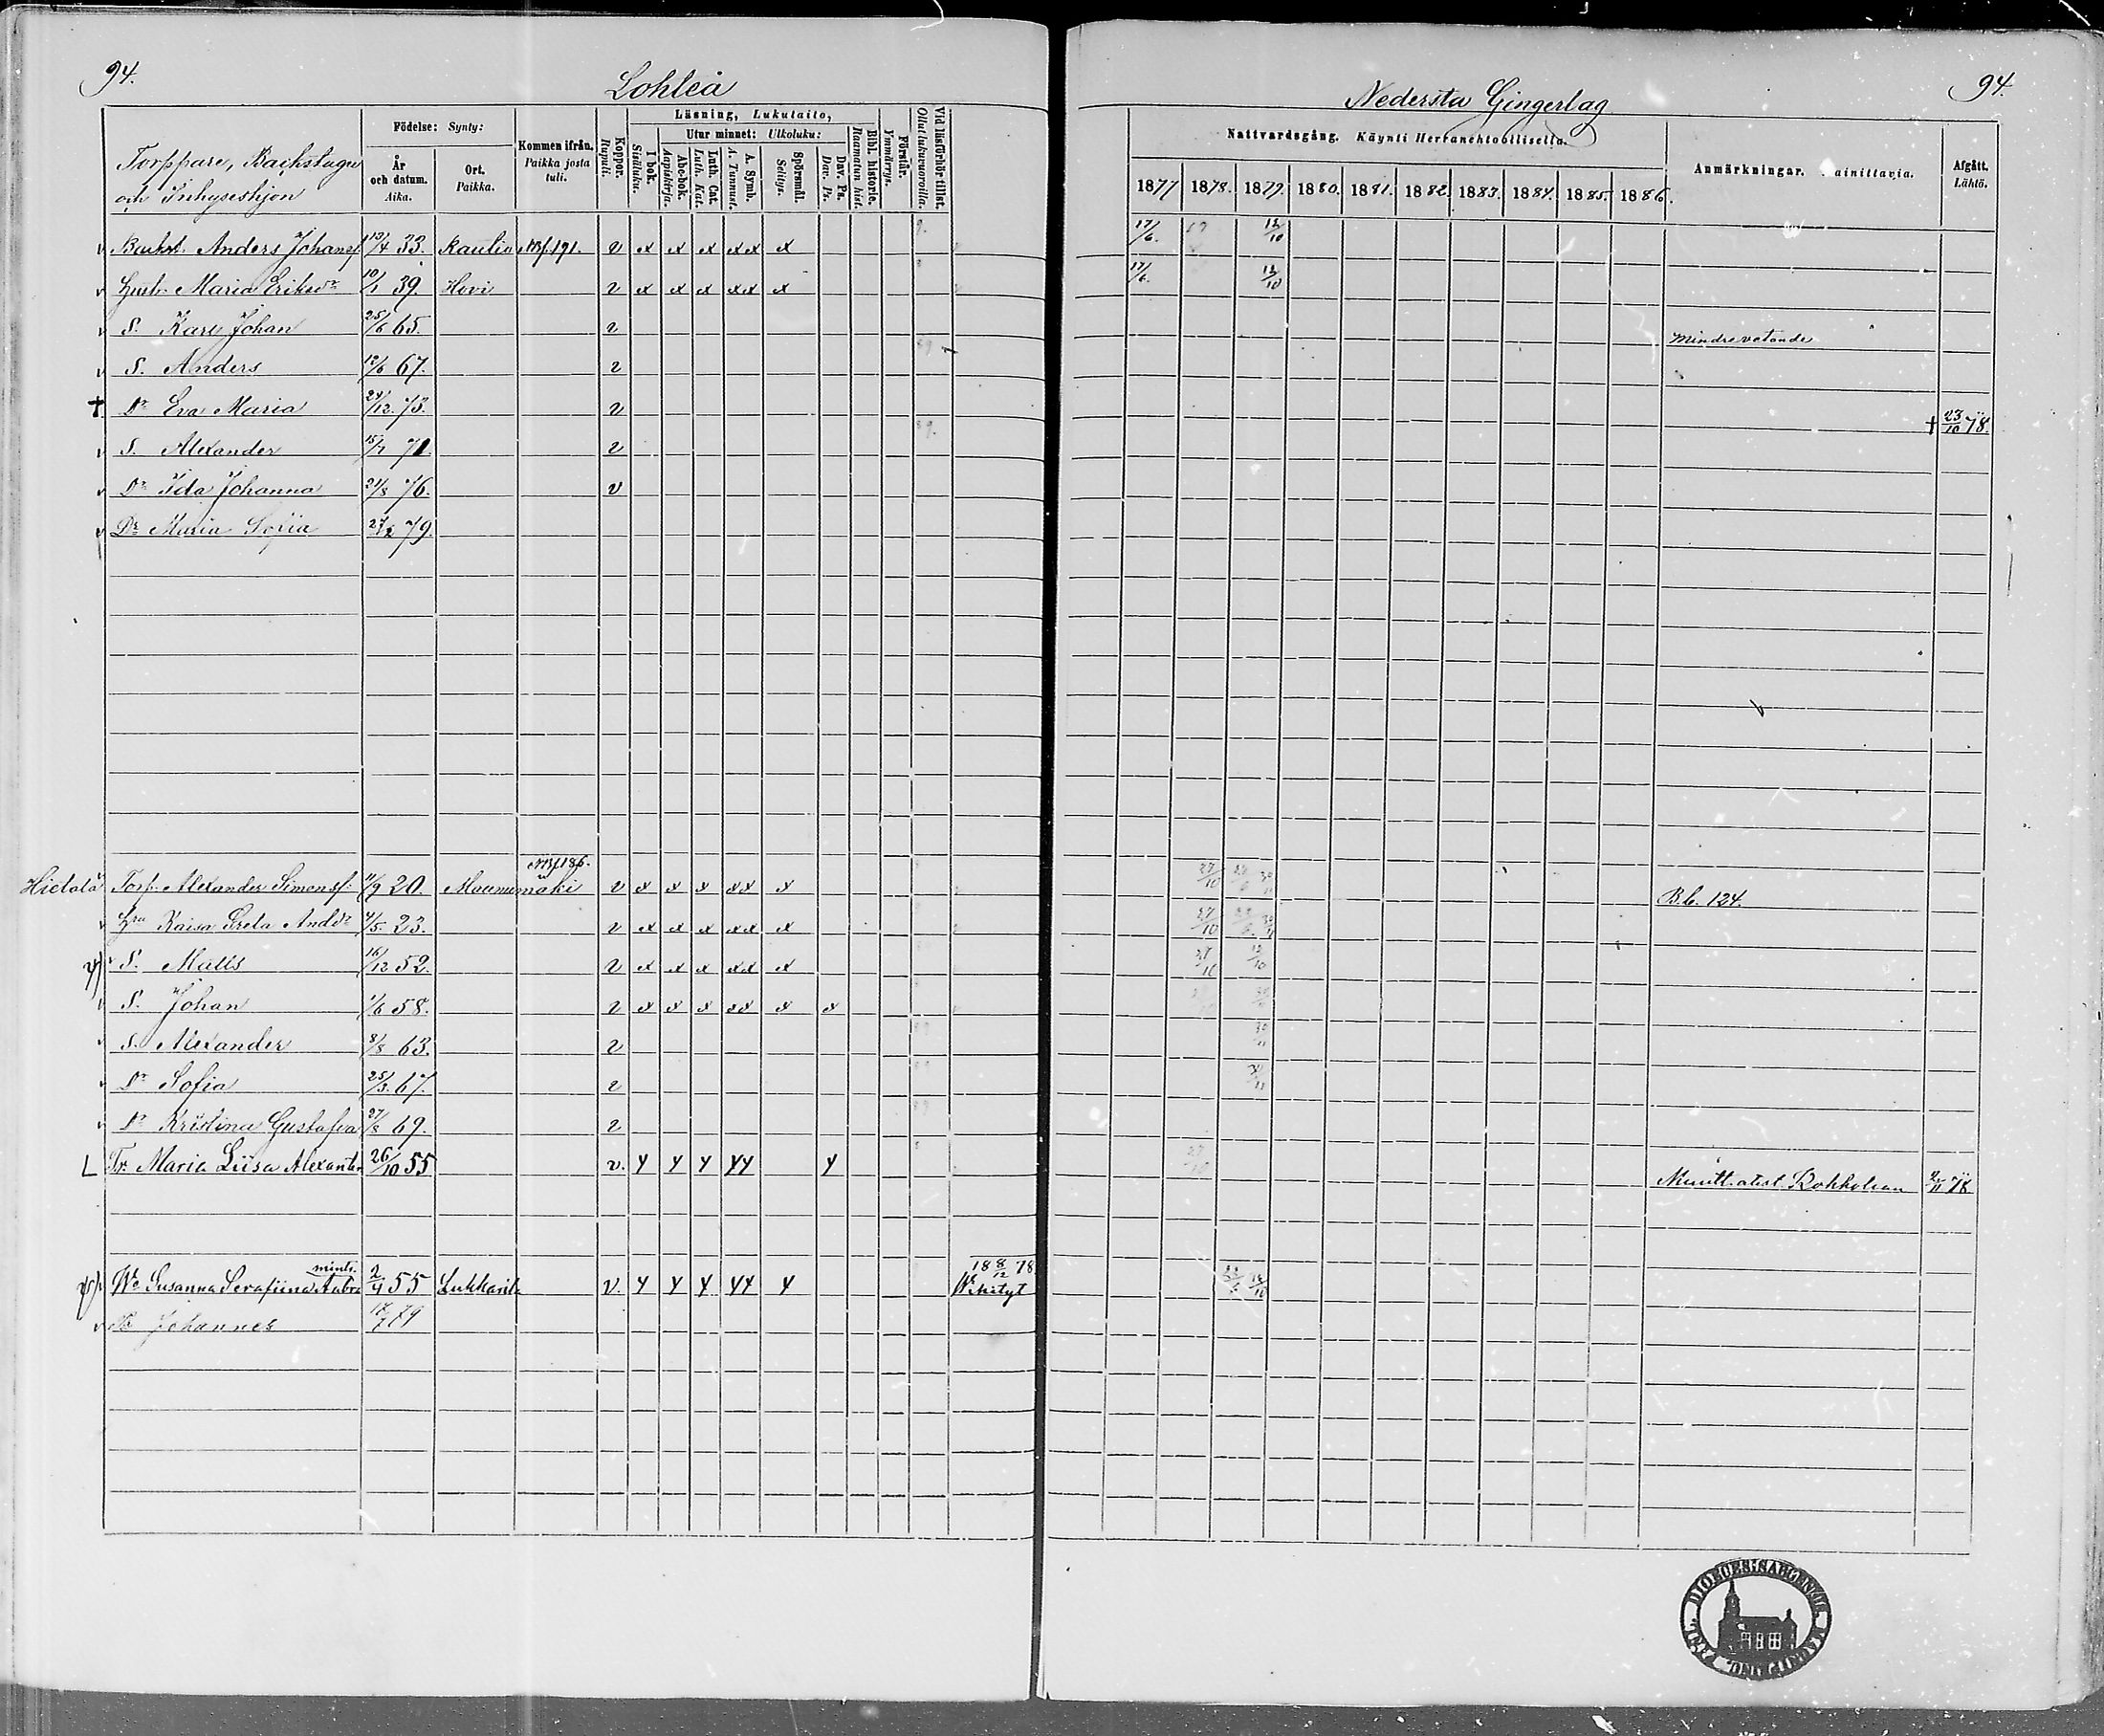 94.
Lohteå
Nedersta Gingerlag
94.
Torppare, Backstugu och Inhyseshjon
Födelse: Synty:
År och datum. Aika.
Ort. Paikka.
Kommen ifrån. Paikka josta tuli.
Koppor. Rupuli.
Läsning, Lukutaito,
I bok. Sisäluku.
Utur minnet: Ulkoluku:
Abc-bok. Aapiskirja.
Luth. Cat. Luth. Kat.
A. Symb. A. Tunnust.
Spörsmål. Selitys.
Dav. Ps. Dav. Ps.
Bibl. historie. Raamatun hist.
Förstår. Ymmärrys.
Vid läsförhör tillst. Ollut lukuvuoroilla.
Nattvardsgång. Käynti Herranehtoollisella.
1877 1878. 1879. 1880. 1881. 1882. 1883. 1884. 1885. 1886.
Anmärkningar. ainittavia.
Afgått. Lähtö.
v Backst. Anders Johansf. 13/4 33. Raulio NBf. 191. v x x x xx x 17/6. 12/10
v Hust. Maria Eriksdr 10/1 39. Hovi v x x x xx x 17/6. 12/10
v S. Karl Johan 25/6 65. v Mindre vetande
v S. Anders 12/6 67. v
† Dr Eva Maria 24/12. 73. v † 23/10 78.
v S. Alexander 15/7 71. v
v Dr Ida Johanna 21/8 76. v
v Dr Maria Sofia 27/2 79.
NBf. 186.
Hietala Torp. Alexander Simonsf. 11/9 20. Maunumäki v x x x xx x 27/10 B.b. 124.
v Hru Kaisa Greta Anddr 4/5. 23. v x x x xx x 27/10
v S. Matts 16/12 52. v x x x xx x 27/10 12/10
v S. Johan 1/6 58. v x x x xx x x
v S. Alexander 8/8 63. v 30/11
v Dr Sofia 25/3. 67. v 30/11
v Dr Kristina Gustafva 27/8 69. v
L Tr Maria Liisa Alexanter 26/10 55 v. y y y yy y 27/10 Muutt. atest. Kokkolaan 78
mints.
Wo Susanna Serafiina Aabra 2/4 55 Lukkarila v. y y y yy y 18 8/12 78 Wihityt 12/10
v Po Johannes 17/7 79
DIOECESISAEGENDE